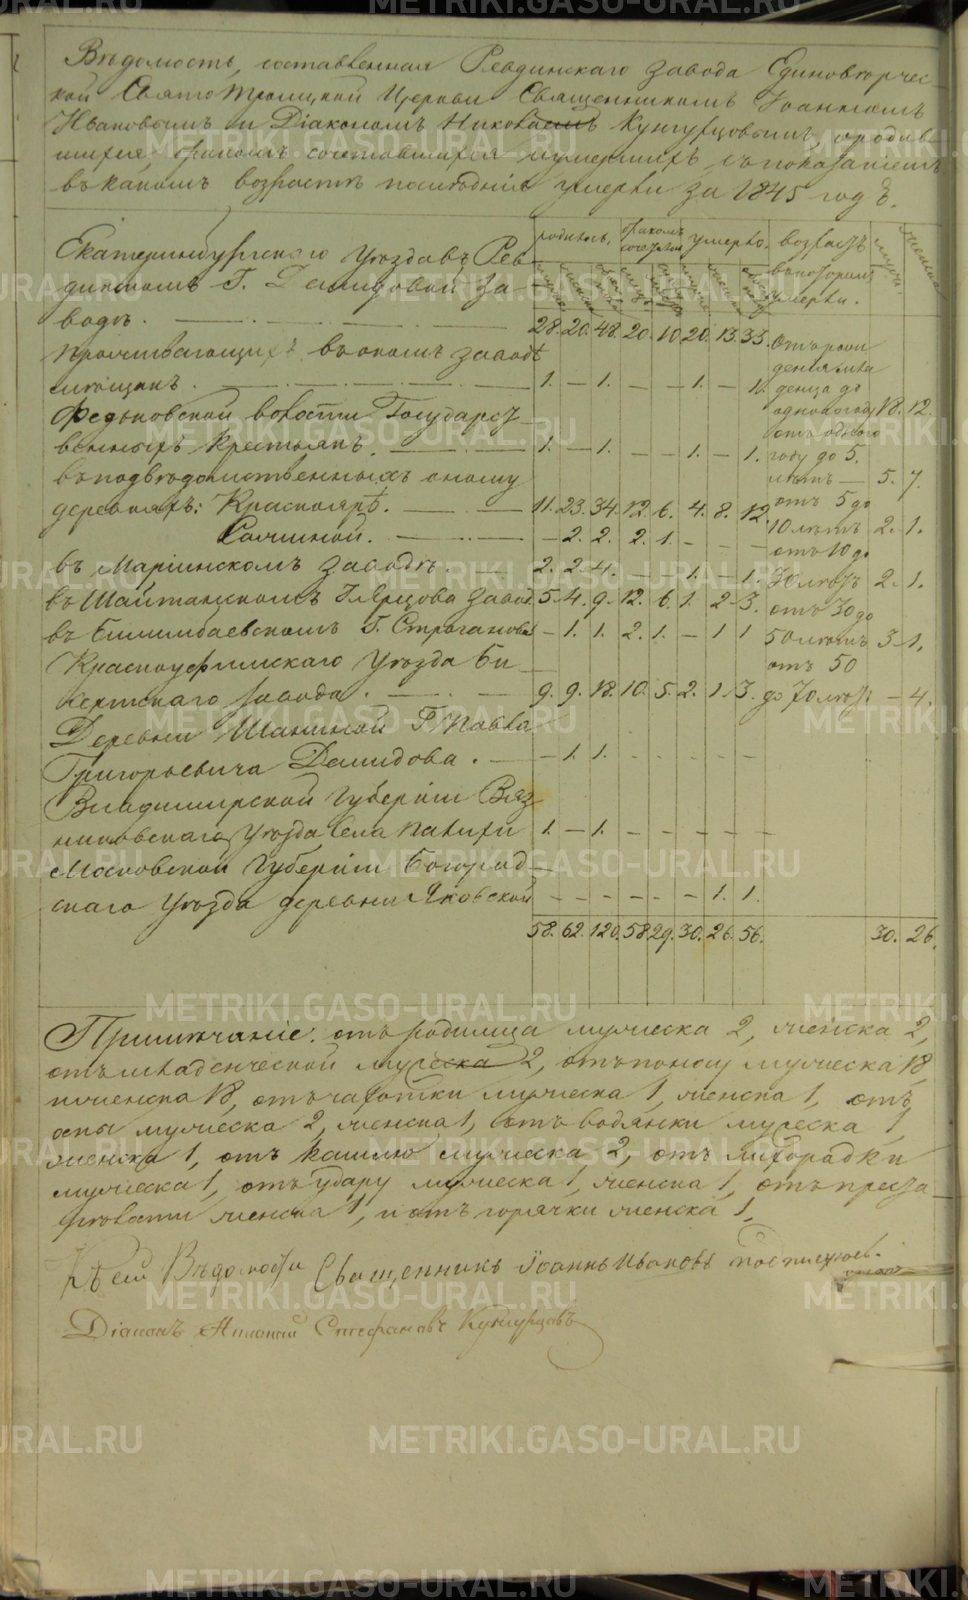 Вѣдомость, составленная Ревдинскаго завода Единовѣрчес-
кой СвятоТроицкой Церкви Священникомъ Іоанномъ
Ивановымъ и Діакономъ Николаемъ Кунгурцовымъ, о родив-
шихся бракомъ сочетавшихся и умершихъ, съ показаніемъ
въ какомъ возрастѣ послѣдніе умерли за 1845 годъ.
родились. бракомъ сочетал. умерло. возрастъ въ которомъ умерли.
Екатеринбургскаго Уѣзда въ Рев-
динскомъ Г. Демидовой за-
водѣ. 28. 20. 48. 20. 10. 20. 13. 33.
Проживающихъ въ ономъ заводѣ
мѣщанъ. 1. — 1. — — 1. — 1.
волости Государст-
венныхъ крестьянъ. 1. — 1. — — 1. — 1.
въ подвѣдомственныхъ оному
деревняхъ: Краснояръ. 11. 23. 34. 12. 6. 4. 8. 12.
— 2. 2. 2. 1. — — —
въ Маріинскомъ заводѣ. 2. 2. 4. — — 1. — 1.
въ Шайтанскомъ Г. Ярцова завод. 5. 4. 9. 12. 6. 1. 2. 3.
въ Билимбаевскомъ Г. Строганова — 1. 1. 2. 1. — 1 1
Красноуфимскаго Уѣзда Би-
сертскаго завода. 9. 9. 18. 10. 5. 2. 1. 3.
Деревни Г. Павла
Григорьевича Демидова. — 1. 1. — — — — —
Владимирской Губерніи Вяз-
никовскаго Уѣзда Села Палихи 1. — 1. — — — — —
Московской Губерніи Богород-
скаго Уѣзда деревни Яковской — — — — — — 1. 1.
58. 62. 120. 58. 29. 30. 26. 56. 30. 26.
отъ рож-
денія мла-
денца до
одного году 18. 12.
отъ одного
году до 5.
лѣтъ — 5. 7.
отъ 5 до
10 лѣтъ 2. 1.
отъ 10 до
30 лѣтъ 2. 1.
отъ 30 до
50 лѣтъ 3. 1.
отъ 50
до 70 лѣтъ — 4.
Примѣчаніе. отъ родимца мужеска 2, женска 2,
отъ младенческой мужеска 2, отъ поносу мужеска 18
и женска 18, отъ чахотки мужеска 1, женска 1, отъ
оспы мужеска 2, женска 1, отъ водянки мужеска 1,
женска 1, отъ кашлю мужеска 2, отъ лихорадки
мужеска 1, отъ удару мужеска 1, женска 1, отъ
женска 1, и отъ горячки женска 1.
Къ сей Вѣдомости Священникъ Іоаннъ Ивановъ подписуюсь.
Діаконъ Николай Стефановъ Кунгурцовъ
METRIKI.GASO-URAL.RU